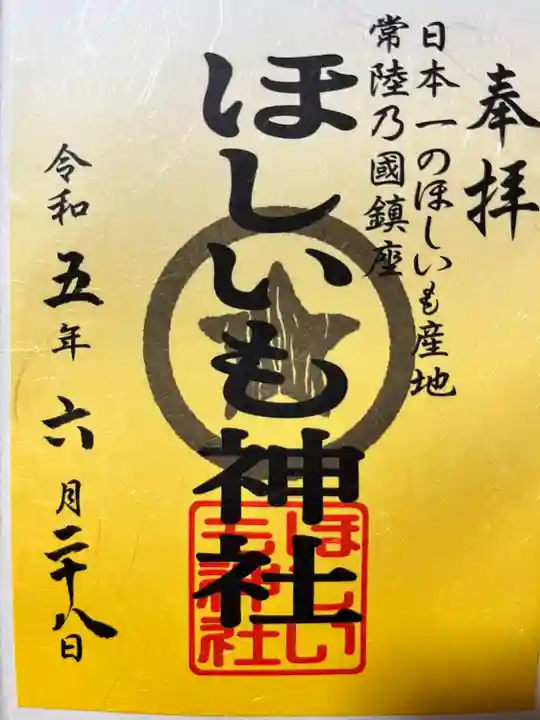 奉拝
日本一のほしいも産地
常陸乃國鎮座
ほしいも神社
令和五年六月二十八日
ほしい
も神社